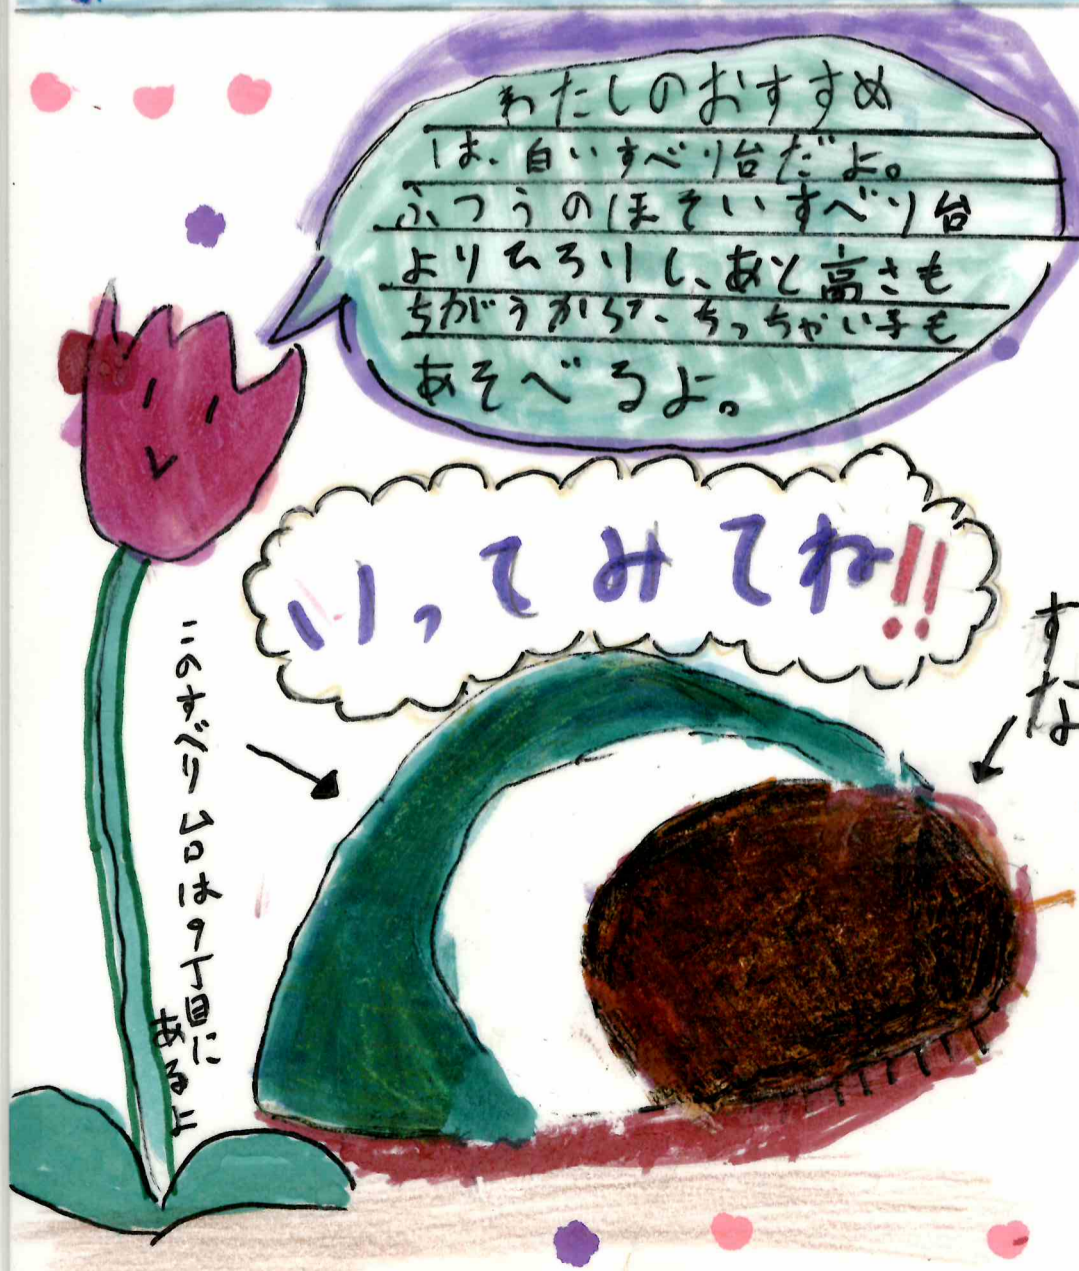 わたしのおすすめ
は、白いすべり台だよ。
ふつうのほそいすべり台
よりひろいし、あと高さも
ちがうから、ちっちゃい子も
あそべるよ。
いってみてね!!
すな
このすべり台は9丁目に
あるよ